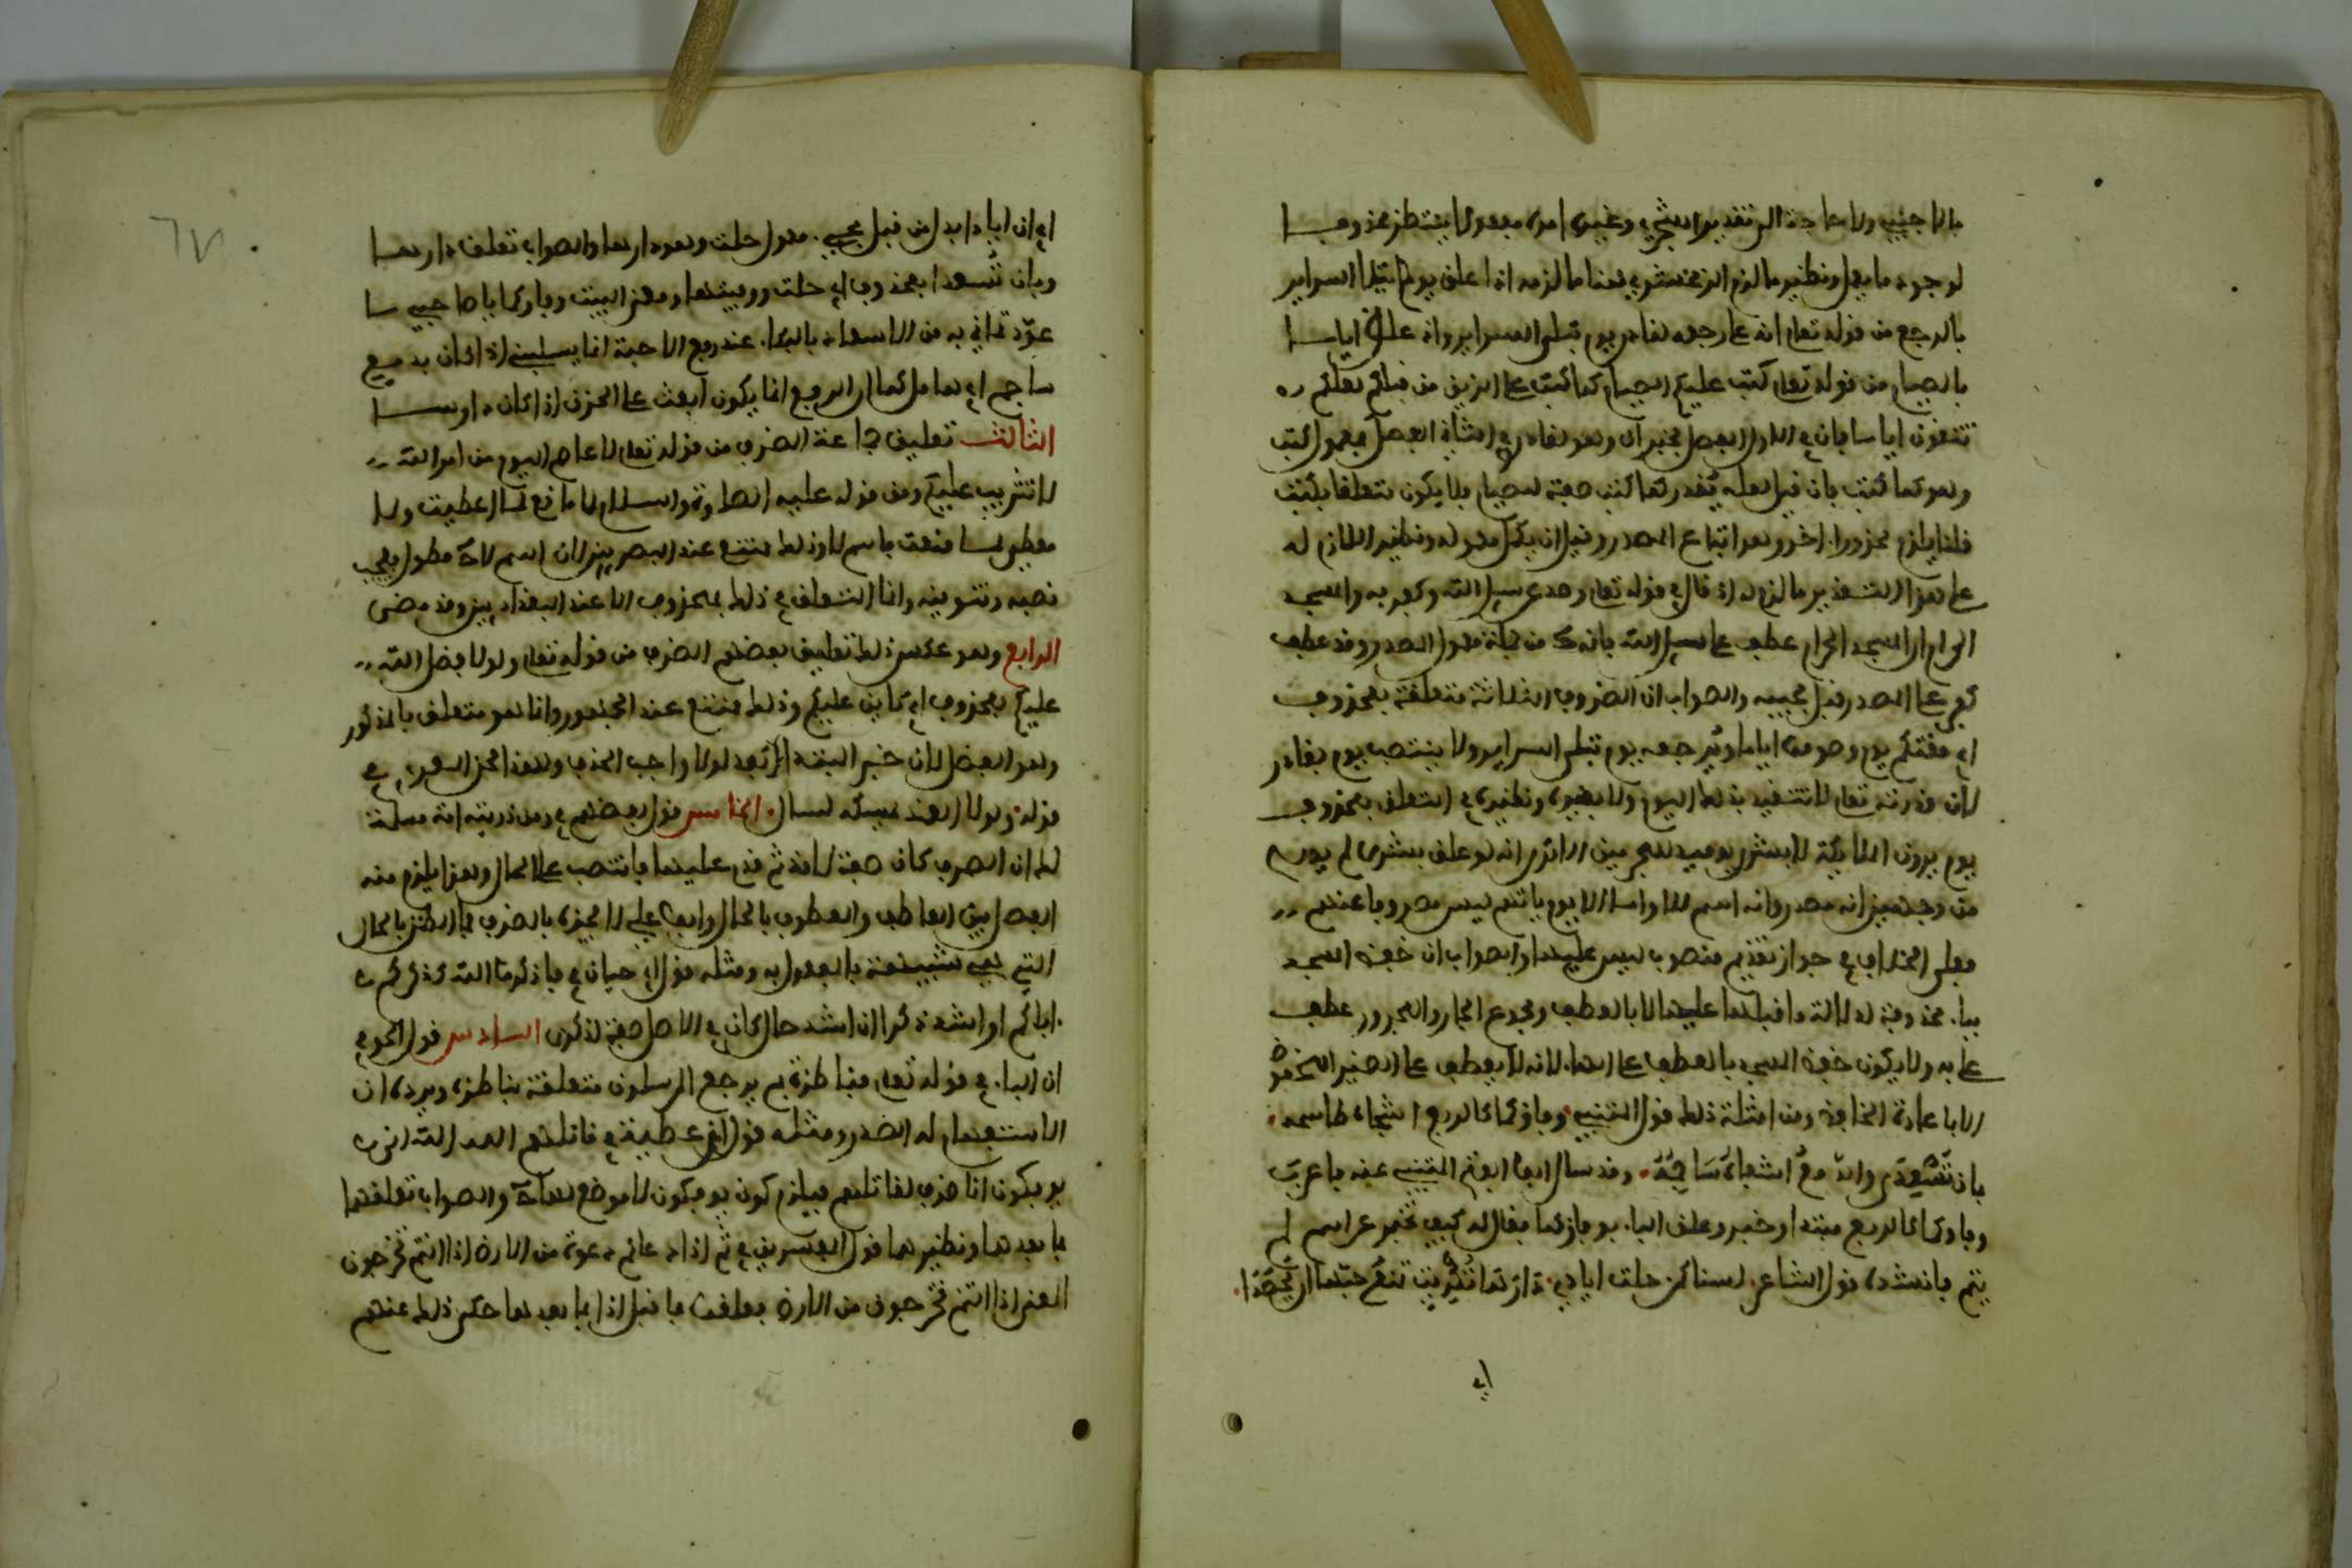 بالاجنبي ولا حاجة الى تقدير الزمخشري وغيره امرا معمولا ينتظر محذوفا
لوجود ما يعمل ونظير ما لزم الزمخشري هنا ما لزمه اذا علق يوم تبلى السراير
بالرجع من قوله تعالى انه على رجعه لقادر يوم تبلى السراير واذ علق اياما
بالصيام من قوله تعالى كتب عليكم الصيام كما كتب على الذين من قبلكم لعلكم
تتقون اياما فان في الاول الفصل بخبر ان وهو لقادر وفي الثاني الفصل بمعمول كتب
وهو كما كتب فان قيل لعله يقدر كما كتب صفة للصيام فلا يكون متعلقا بكتب
قلنا يلزم محذور اخر وهو اتباع المصدر قبل ان يكمل معموله ونظير اللازم له
على هذا التقدير ما لزمه اذ قال في قوله تعالى وصد عن سبيل الله وكفر به والمسجد
الحرام ان المسجد الحرام عطف على سبيل الله فانه من جملة معمول المصدر وقد عطف
كفر على المصدر قبل مجيئه والصواب ان الظروف الثلاثة متعلقة بمحذوف
اي مقتكم يوم وصوموا اياما ويرجعه يوم تبلى السراير ولا ينتصب يوم بقادر
لان قدرته تعالى لا تتقيد بذلك اليوم ولا بغيره ونظيره في التعلق بمحذوف
يوم يرون الملايكة لا بشرى يوميذ للمجرمين الا ترى انه لو علق ببشرى لم يصح
من وجهين انه مصدر وانه اسم للا واما الا يوم ياتيهم ليس مصروفا عنهم
فعلى الخلاف في جواز تقديم منصوب ليس عليها والصواب ان خفض المسجد
بباء محذوفة لدلالة ما قبلها عليها لا بالعطف ومجموع الجار والمجرور عطف
على به ولا يكون خفض المسجد بالعطف على الهاء لانه لا يعطف على الضمير المخفوض
الا باعادة الخافض ومن امثلة ذلك قول المتنبي وفاؤكما كالربع اشجاه طاسمه
بان تسعدا والدمع اشفاه ساجمه وقد سال ابو الفتح المتنبي عنه فاعرب
وفاوكما كالربع مبتدا وخبر وعلق الباء بوفاؤكما فقال له كيف تخبر عن اسم لم
يتم فانشده قول الشاعر لسنا كمن حلت اياد دارها تكريت تمنع حبها ان يحصدا
اي
اي ان اياد ابدل من قبل مجيء معمول حلت وهو دارها والصواب تعلق دارها
وبان تسعدا بمحذوف اي حلت ووفيتما ومعنى البيت وفاوكما يا صاحبي بما
عودتماني به من الاسعاد بالبكاء عند ربع الاحبة انما يسليني اذا كان بدمع
ساجم اي هامل كما ان الربع انما يكون ابعث على الحزن اذا كان دارسا
الثالث تعليق جماعة الظرف من قوله تعالى لا عاصم اليوم من امر الله
لا تثريب عليكم ومن قوله عليه الصلاة والسلام لا مانع لما اعطيت ولا
معطي لما منعت باسم لا وذلك ممتنع عند البصريين لان اسم لا مطول فيجب
نصبه وتنوينه وانما التعلق في ذلك بمحذوف الا عند البغداديين وقد مضى
الرابع وهو عكس ذلك تعليق بعضهم الظرف من قوله تعالى ولولا فضل الله
عليكم بمحذوف اي كاين عليكم وذلك ممتنع عند الجمهور وانما هو متعلق بالمذكور
وهو الفضل لان خبر المبتدا بعد لولا واجب الحذف ولهذا لحن المعري في
قوله ولولا الغمد يمسكه لسالا الخامس قول بعضهم في ومن ذريتنا امة مسلمة
لك ان الظرف كان صفة لامة ثم قدم عليها فانتصب على الحال وهذا يلزم منه
الفصل بين العاطف والمعطوف بالحال وابو علي لا يجيزه بالظرف فما الظن بالحال
التي هي شبيهة بالمفعول به ومثله قول ابي حيان في فاذكروا الله كذكركم
اباءكم او اشد ذكرا ان اشد حال كان في الاصل صفة لذكرا السادس قول الحوفي
ان الباء في قوله تعالى فناظرة بم يرجع المرسلون متعلقة بناظرة ويرده ان
الاستفهام له الصدر ومثله قول ابن عطية في قاتلهم الله انى
يوفكون انى ظرف لقاتلهم فيلزم كون يوفكون لا موضع لها والصواب تعلقهما
بما بعدهما ونظيرهما قول المفسرين في ثم اذا دعاكم دعوة من الارض اذا انتم تخرجون
المعنى اذا انتم تخرجون من الارض فعلقت ما قبل اذا بما بعدها حكى ذلك عنهم